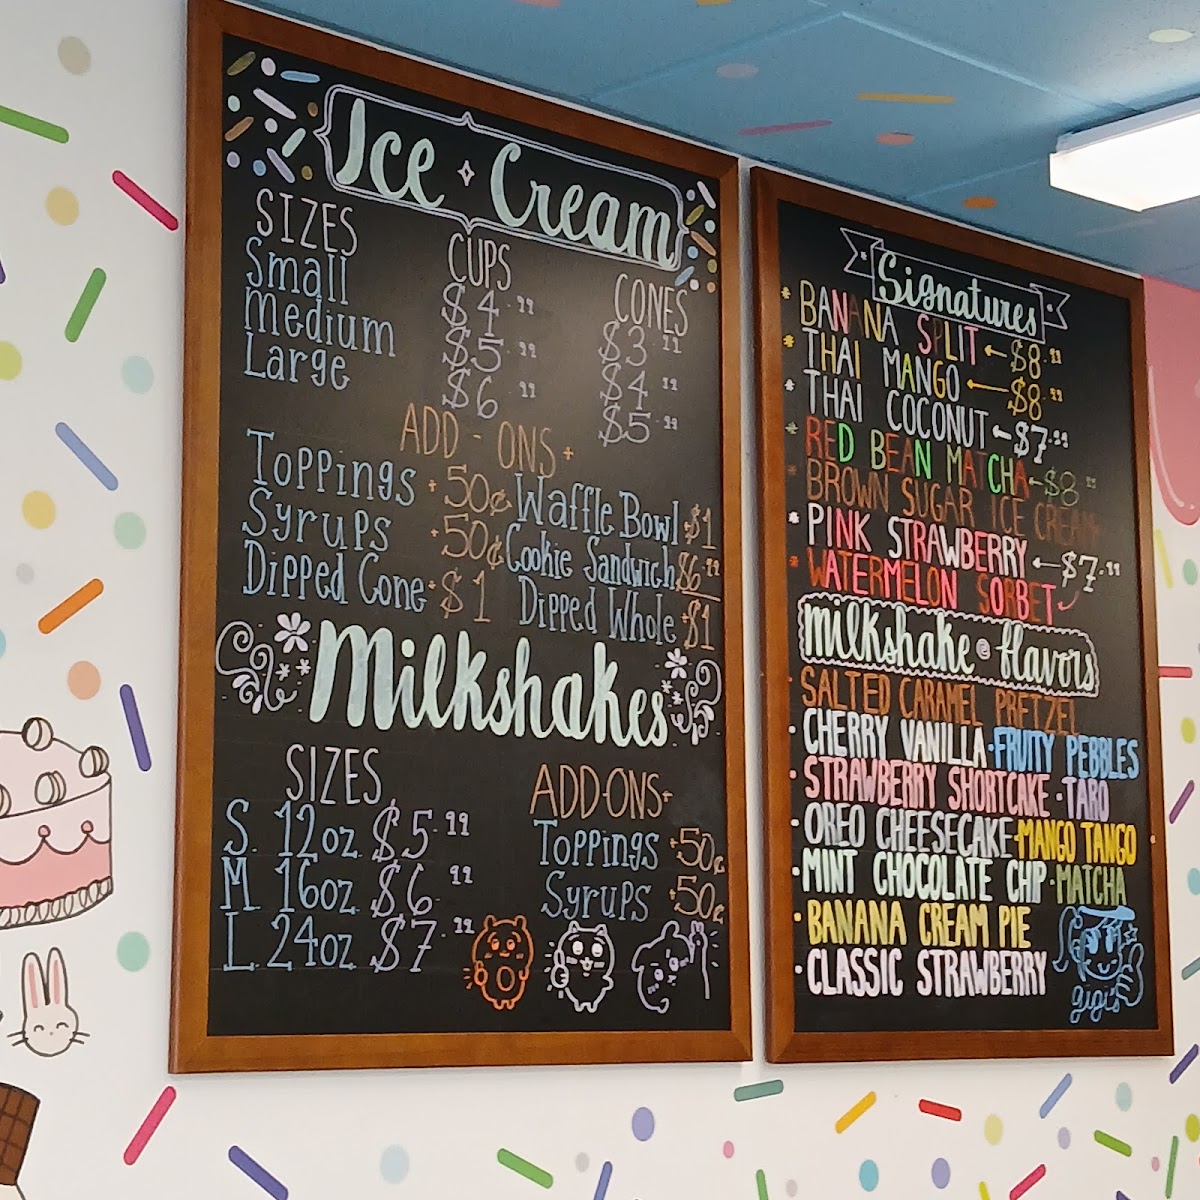 Ice Cream
SIZES CUPS CONES
Small $4.99 $3.99
Medium $5.99 $4.99
Large $6.99 $5.99
ADD-ONS+
Toppings +50¢ Waffle Bowl +$1
Syrups +50¢ Cookie Sandwich $6.99
Dipped Cone +$1 Dipped Whole +$1
Milkshakes
SIZES ADD-ONS+
S. 12oz $5.99 Toppings +50¢
M. 16oz $6.99 Syrups +50¢
L. 24oz $7.99
Signatures
* BANANA SPLIT ←$8.99
* THAI MANGO ←$8.99
* THAI COCONUT ←$7.99
* RED BEAN MATCHA ←$8.99
* BROWN SUGAR ICE CREAM
* PINK STRAWBERRY ←$7.99
* WATERMELON SORBET
Milkshake flavors
· SALTED CARAMEL PRETZEL
· CHERRY VANILLA · FRUITY PEBBLES
· STRAWBERRY SHORTCAKE · TARO
· OREO CHEESECAKE · MANGO TANGO
· MINT CHOCOLATE CHIP · MATCHA
· BANANA CREAM PIE
· CLASSIC STRAWBERRY
gigi's